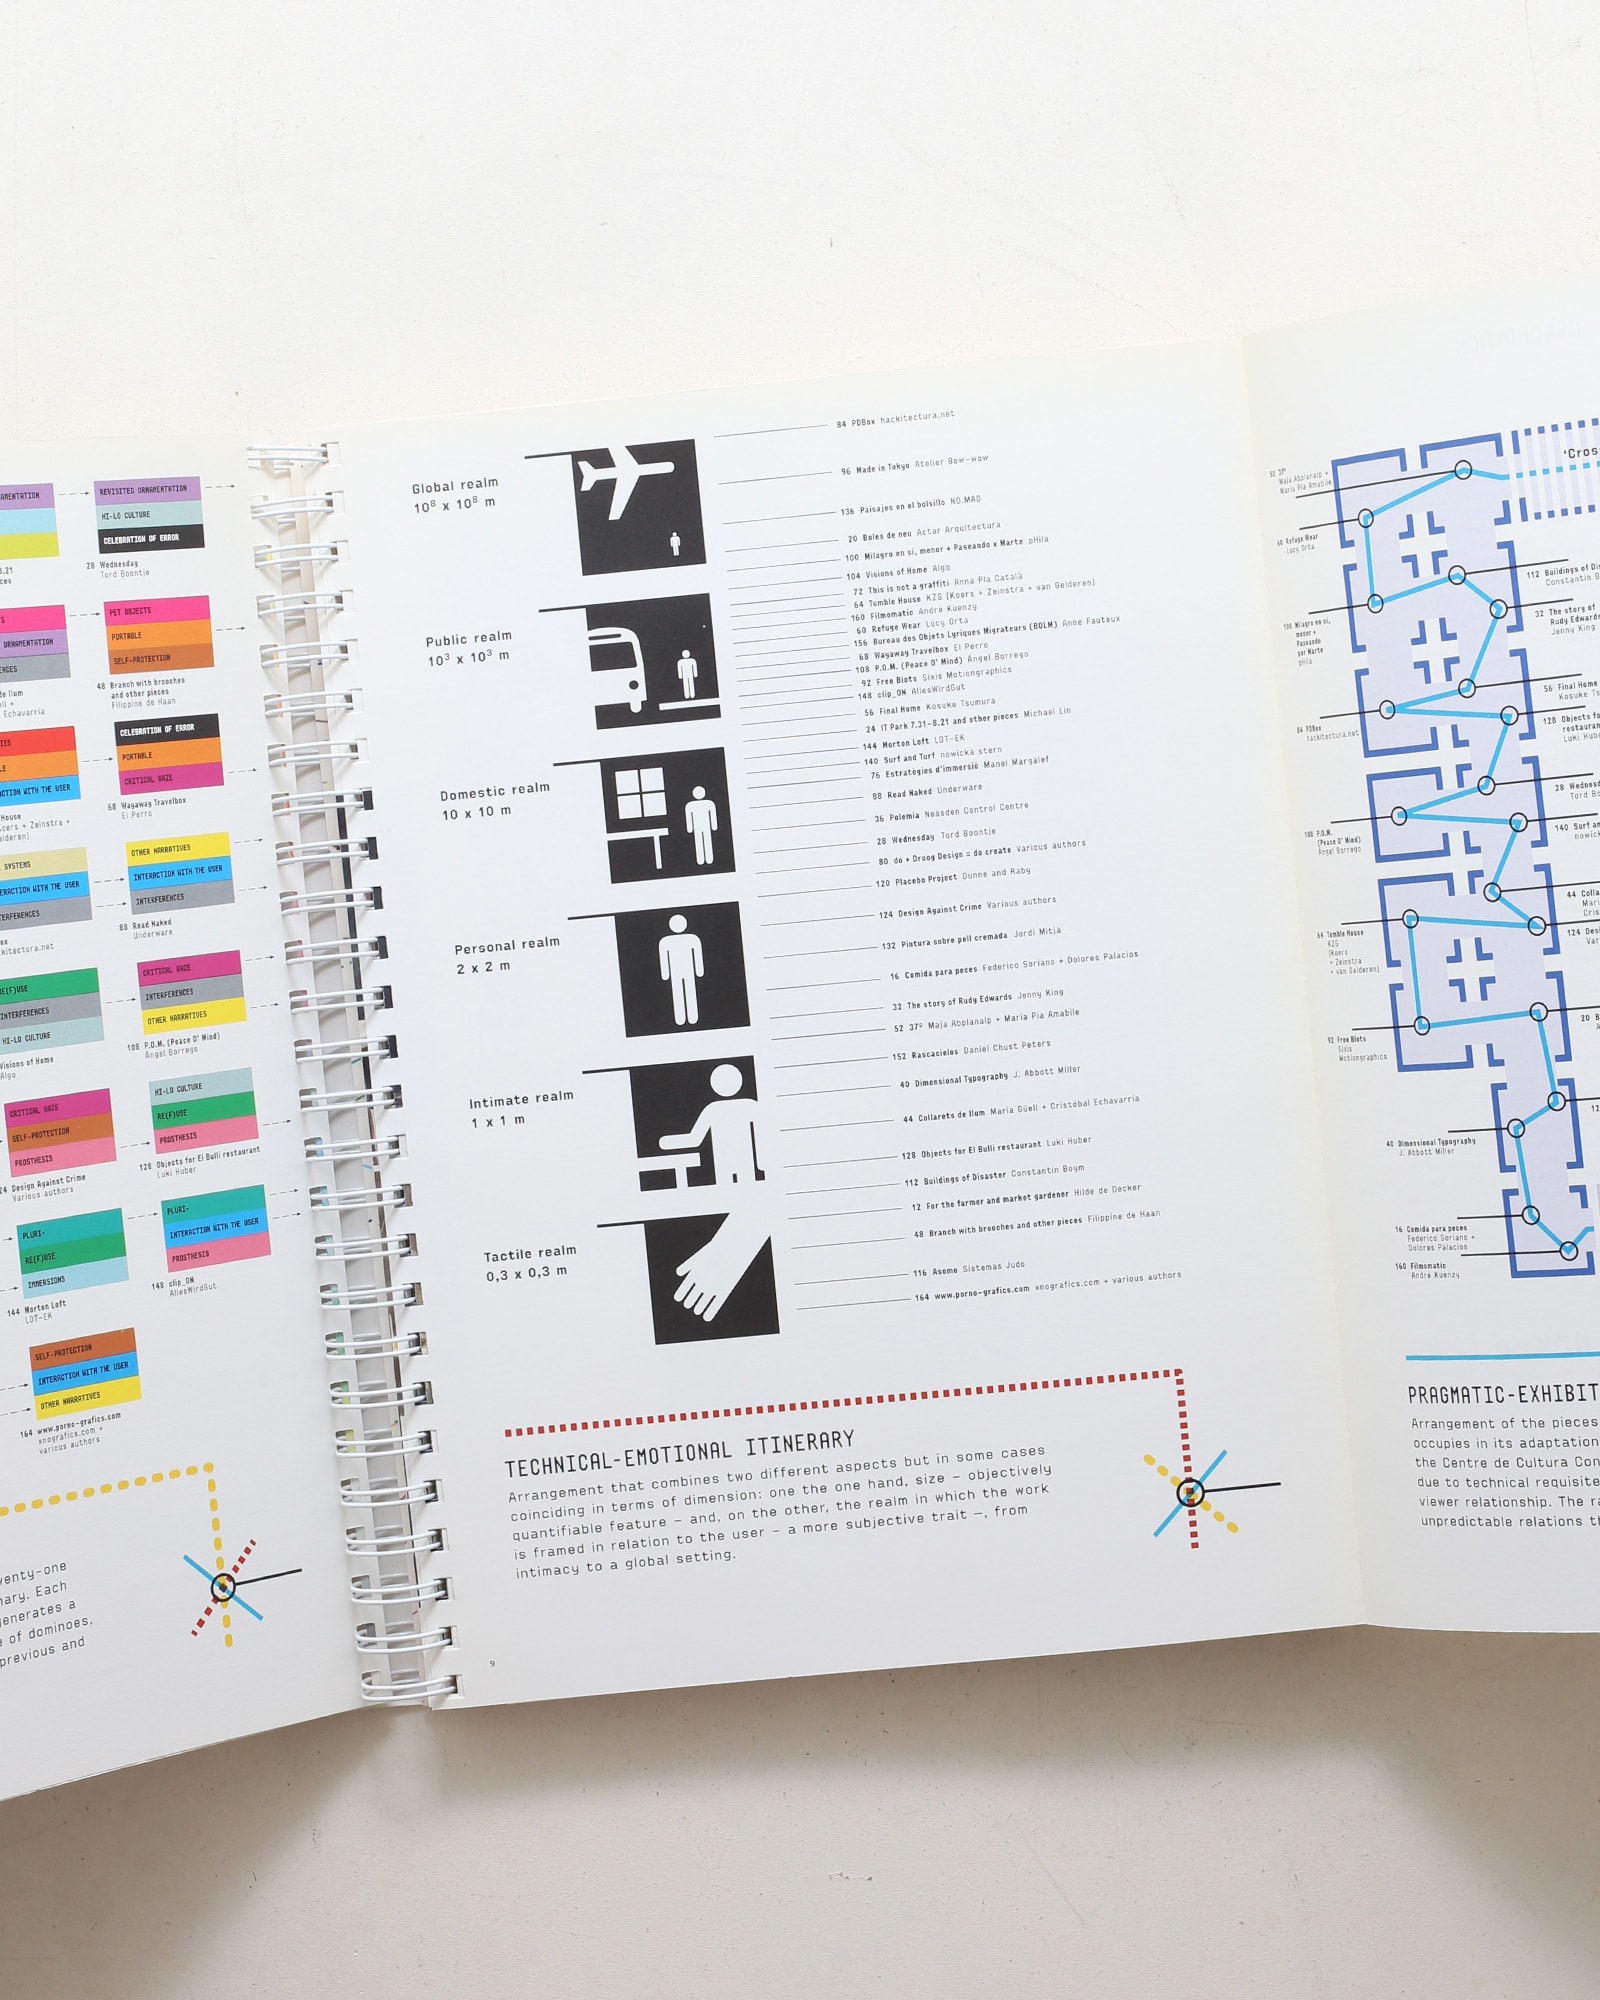 REVISITED ORNAMENTATION
HI-LO CULTURE
CELEBRATION OF ERROR
28 Wednesday
Tord Boontje
PET OBJECTS
PORTABLE
SELF-PROTECTION
48 Branch with brooches
and other pieces
Filippine de Haan
ORNAMENTATION
Echavarria
CELEBRATION OF ERROR
PORTABLE
CRITICAL GAZE
68 Wayaway Travelbox
El Perro
INTERACTION WITH THE USER
House
Koers + Zeinstra +
SYSTEMS
INTERACTION WITH THE USER
INTERFERENCES
OTHER NARRATIVES
INTERACTION WITH THE USER
INTERFERENCES
88 Read Naked
Underware
RE(F)USE
INTERFERENCES
HI-LO CULTURE
Visions of Home
Algo
CRITICAL GAZE
INTERFERENCES
OTHER NARRATIVES
108 P.O.M. (Peace O' Mind)
Ángel Borrego
CRITICAL GAZE
SELF-PROTECTION
PROSTHESIS
Design Against Crime
Various authors
HI-LO CULTURE
RE(F)USE
PROSTHESIS
128 Objects for El Bulli restaurant
Luki Huber
PLURI-
RE(F)USE
IMMERSIONS
144 Morton Loft
LOT-EK
PLURI-
INTERACTION WITH THE USER
PROSTHESIS
148 clip_ON
AllesWirdGut
SELF-PROTECTION
INTERACTION WITH THE USER
OTHER NARRATIVES
164 www.porno-grafics.com
xnografics.com +
various authors
twenty-one
Each
generates a
of dominoes,
previous and
Global realm
10⁸ x 10⁸ m
Public realm
10³ x 10³ m
Domestic realm
10 x 10 m
Personal realm
2 x 2 m
Intimate realm
1 x 1 m
Tactile realm
0,3 x 0,3 m
84 PDBox hackitectura.net
96 Made in Tokyo Atelier Bow-wow
136 Paisajes en el bolsillo NO.MAD
20 Boles de neu Actar Arquitectura
100 Milagro en si, menor + Paseando x Marte pHila
104 Visions of Home Algo
72 This is not a graffiti Anna Pla Català
64 Tumble House KZG (Koers + Zeinstra + van Gelderen)
160 Filmomatic André Kuenzy
60 Refuge Wear Lucy Orta
156 Bureau des Objets Lyriques Migrateurs (BOLM) Anne Fauteux
68 Wayaway Travelbox El Perro
108 P.O.M. (Peace O' Mind) Ángel Borrego
92 Free Biots Sixis Motiongraphics
148 clip_ON AllesWirdGut
56 Final Home Kosuke Tsumura
24 IT Park 7.31-8.21 and other pieces Michael Lin
144 Morton Loft LOT-EK
140 Surf and Turf nowicka stern
76 Estratègies d'immersió Manel Margalef
88 Read Naked Underware
36 Polemia Neasden Control Centre
28 Wednesday Tord Boontje
80 do + Droog Design = do create Various authors
120 Placebo Project Dunne and Raby
124 Design Against Crime Various authors
132 Pintura sobre pell cremada Jordi Mitjà
16 Comida para peces Federico Soriano + Dolores Palacios
32 The story of Rudy Edwards Jenny King
52 37º Maja Abplanalp + Maria Pia Amabile
152 Rascacielos Daniel Chust Peters
40 Dimensional Typography J. Abbott Miller
44 Collarets de llum Maria Güell + Cristóbal Echavarria
128 Objects for El Bulli restaurant Luki Huber
112 Buildings of Disaster Constantin Boym
12 For the farmer and market gardener Hilde de Decker
48 Branch with brooches and other pieces Filippine de Haan
116 Asomo Sistemas Judo
164 www.porno-grafics.com xnografics.com + various authors
TECHNICAL-EMOTIONAL ITINERARY
Arrangement that combines two different aspects but in some cases
coinciding in terms of dimension: one the one hand, size – objectively
quantifiable feature – and, on the other, the realm in which the work
is framed in relation to the user – a more subjective trait –, from
intimacy to a global setting.
9
52 37º
Maja Abplanalp +
Maria Pia Amabile
60 Refuge Wear
Lucy Orta
100 Milagro en si,
menor +
Paseando
por Marte
pHila
84 PDBox
hackitectura.net
108 P.O.M.
(Peace O' Mind)
Ángel Borrego
64 Tumble House
KZG
(Koers
+ Zeinstra
+ van Gelderen)
92 Free Biots
Sixis
Motiongraphics
40 Dimensional Typography
J. Abbott Miller
16 Comida para peces
Federico Soriano +
Dolores Palacios
160 Filmomatic
André Kuenzy
112 Buildings of
Constantin
32 The story of
Rudy Edwards
Jenny King
56 Final Home
Kosuke
128 Objects for
Luki
28
140 Surf
44
124
20
PRAGMATIC-EXHIBIT
Arrangement of the pieces
occupies in its adaptation
the Centre de Cultura
due to technical requisite
viewer relationship. The
unpredictable relations